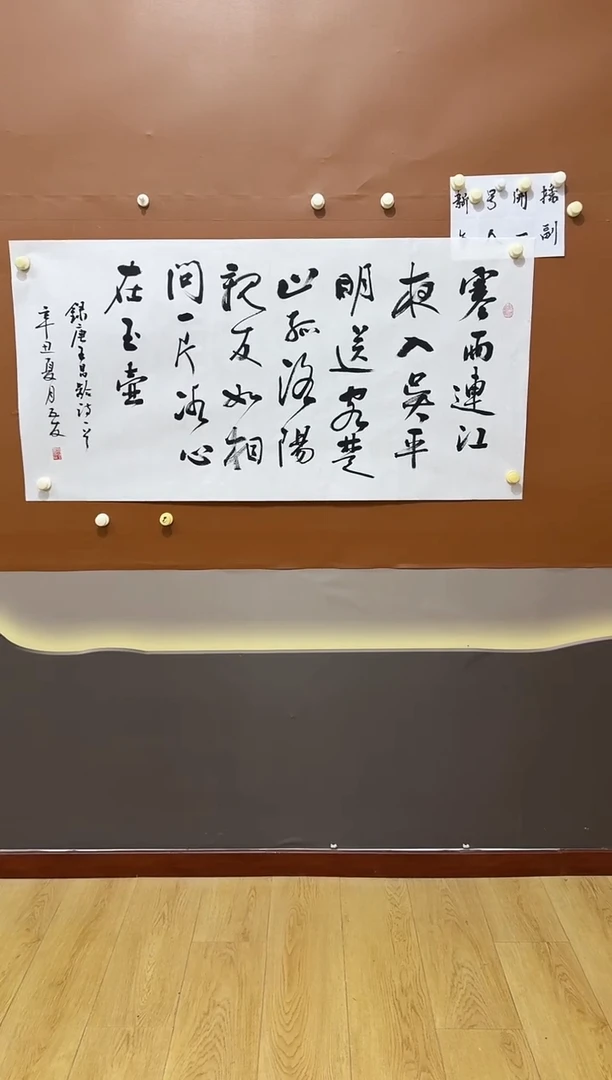 寒雨連江
夜入吳平
明送客楚
山孤洛陽
親友如相
問一片冰心
在玉壺
録唐王昌齡詩一首
辛丑夏月
播副
開一
号
新